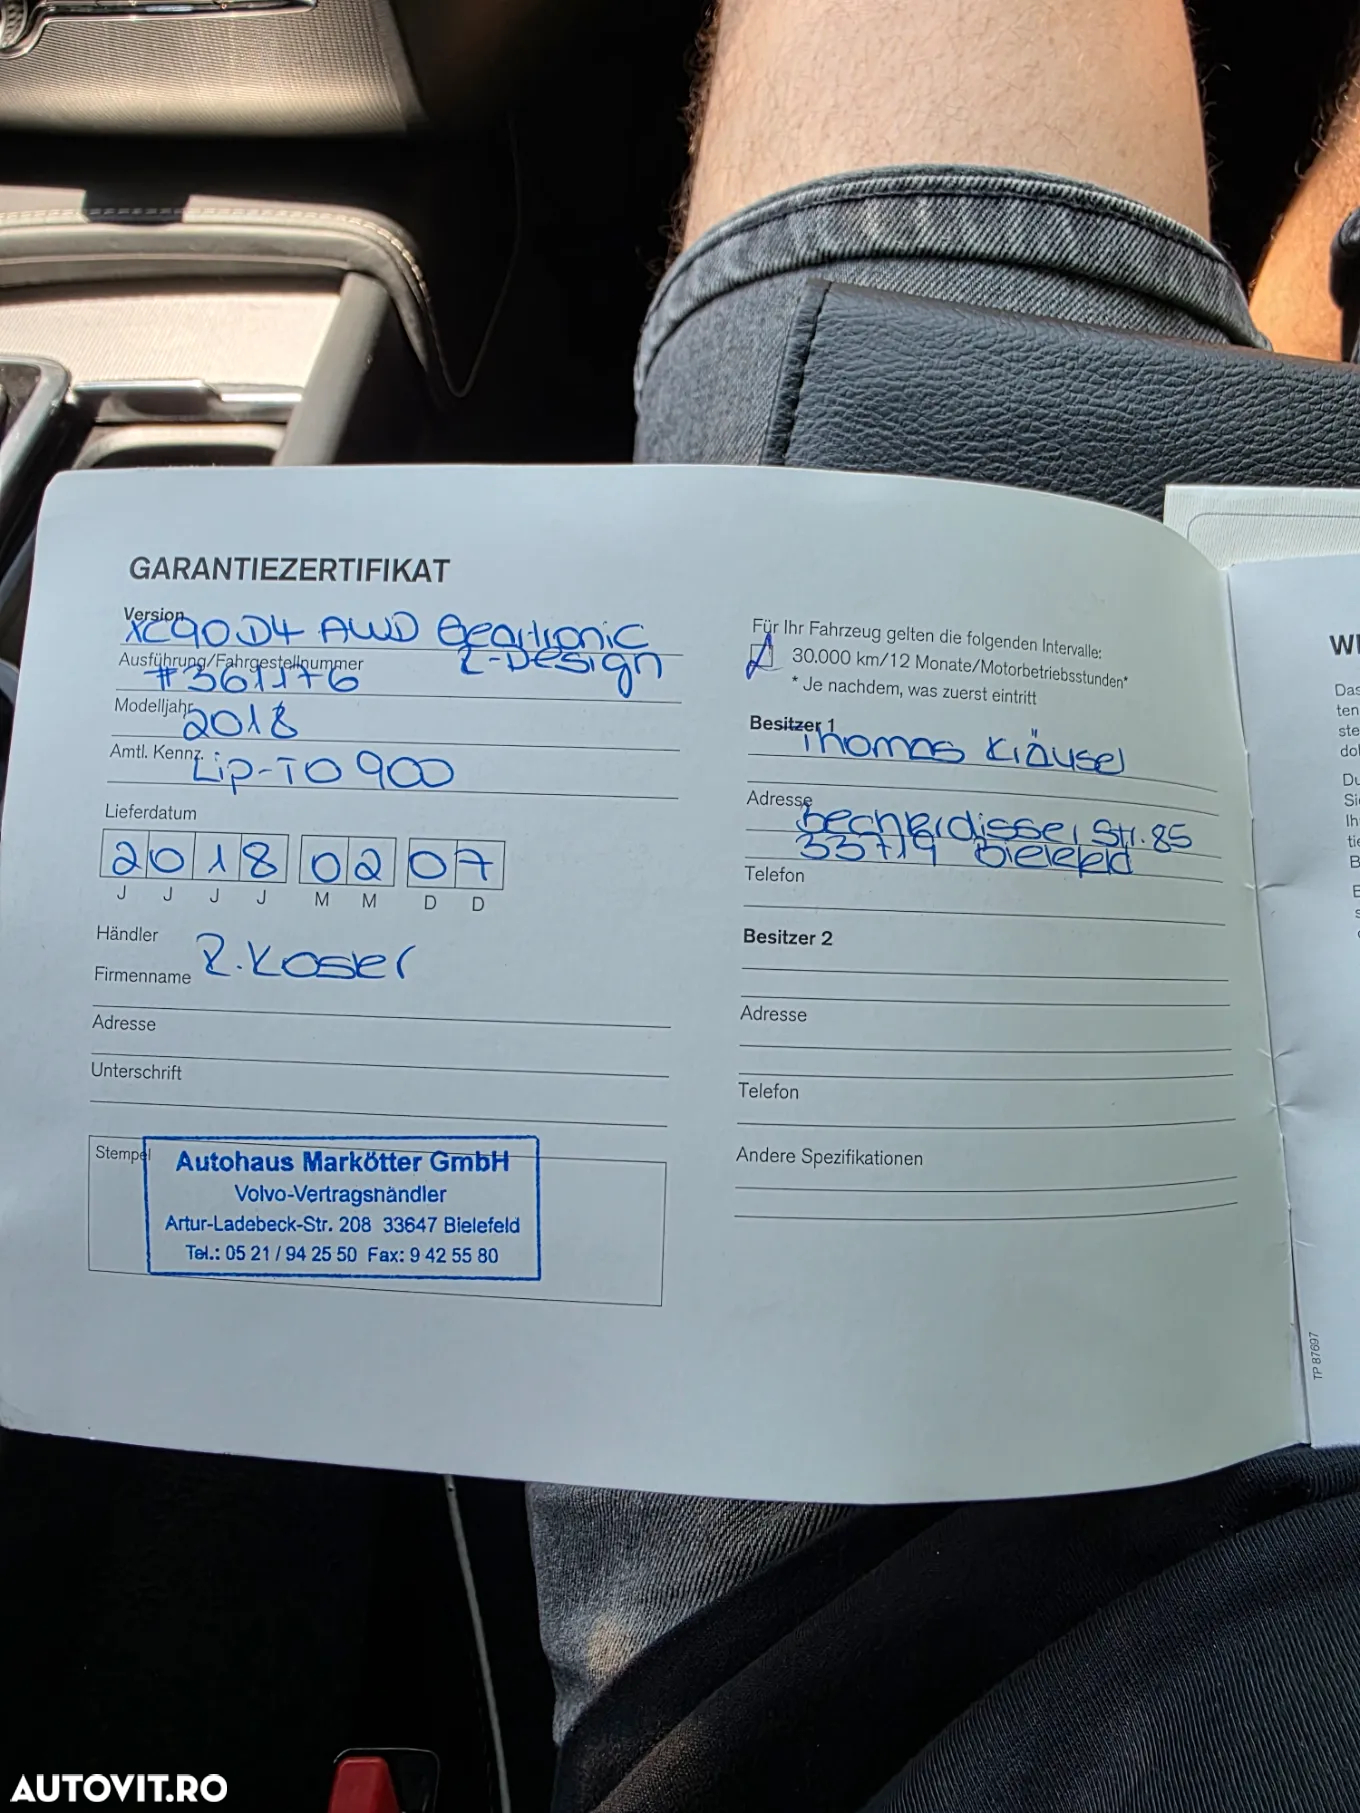 GARANTIEZERTIFIKAT
Version
XC90 D4 AWD Geartronic
Ausführung/Fahrgestellnummer
R-Design
#361176
Modelljahr
2018
Amtl. Kennz.
Lip-TO 900
Lieferdatum
2018 02 07
J J J J M M D D
Händler
R. Koser
Firmenname
Adresse
Unterschrift
Stempel
Autohaus Markötter GmbH
Volvo-Vertragshändler
Artur-Ladebeck-Str. 208 33647 Bielefeld
Tel.: 05 21 / 94 25 50 Fax: 9 42 55 80
Für Ihr Fahrzeug gelten die folgenden Intervalle:
30.000 km/12 Monate/Motorbetriebsstunden*
* Je nachdem, was zuerst eintritt
Besitzer 1
Thomas Kläusel
Adresse
Str. 85
33719 Bielefeld
Telefon
Besitzer 2
Adresse
Telefon
Andere Spezifikationen
TP 87697
AUTOVIT.RO